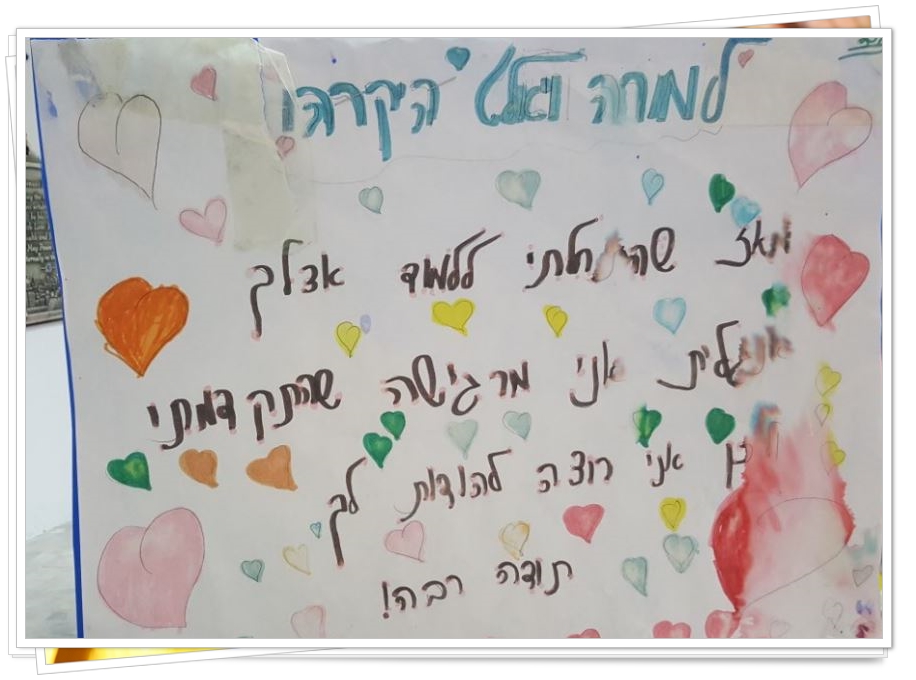 למורה היקרה!
מאז שהתחלתי ללמוד אצלך
אנגלית אני מרגישה שהתקדמתי
אני רוצה להודות לך
תודה רבה!